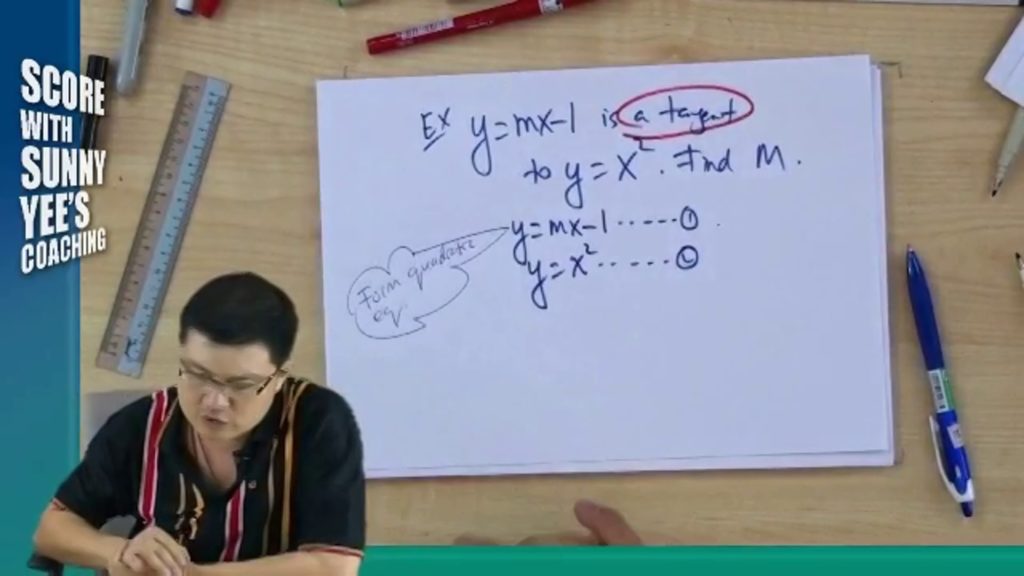 SCORE
WITH
SUNNY
YEE'S
COACHING
Ex y=mx-1 is a tangent
to y=x². Find M.
y=mx-1 ------①
y=x² ------②
Form quadratic
eq